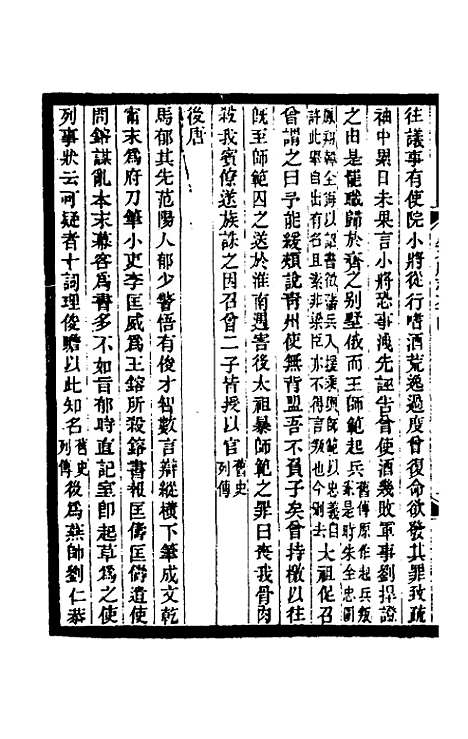 往議事有使院小將從行嗜酒荒逸過度曾復命欲發其罪致疏
袖中累日未果言小將恐事洩先誣告曾使酒幾敗軍事劉捍證
之由是罷職歸於齊之别墅俄而王師範起兵舊傳原作起兵叛案是時朱全忠圍
鳳翔韓全誨以詔書徵藩兵入援師範以忠義自許此舉自出有名且素非梁臣亦不得言叛也今刪去太祖促召
曾謂之曰子能緩頰說青州使無背盟吾不負子矣曾持檄以往
旣至師範囚之送於淮南遇害後太祖暴師範之罪曰喪我骨肉
殺我賓僚遂族誅之因召曾二子皆授以官舊史列傳
後唐
馬郁其先范陽人郁少警悟有俊才智數言辯縱橫下筆成文乾
甯末爲府刀筆小吏李匡威爲王鎔所殺鎔書報匡儔匡儔遣使
問鎔謀亂本末幕客爲書多不如旨郁時直記室卽起草爲之使
列事狀云可疑者十詞理俊贍以此知名舊史列傳後爲燕師劉仁恭